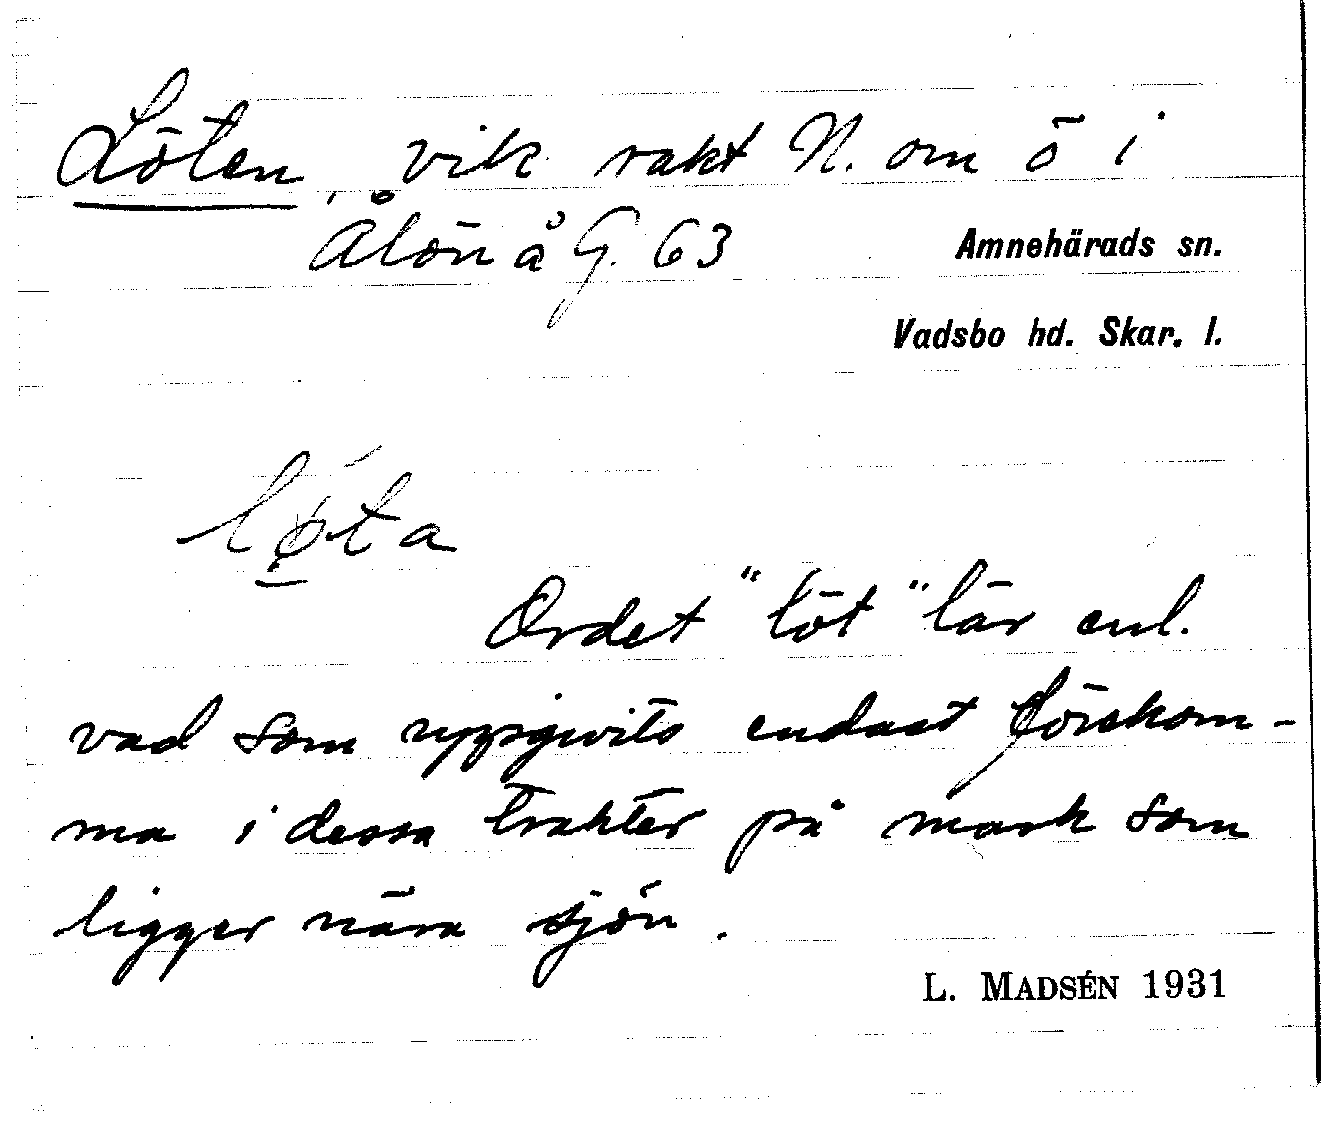 Löten, vik rakt N. om ö i
Ålön å G. 63
Amnehärads sn.
Vadsbo hd. Skar. l.
lǿ̱ta
Ordet "löt" lär enl.
vad som uppgivits endast förekom-
ma i dessa trakter på mark som
ligger nära sjön.
L. MADSÉN 1931